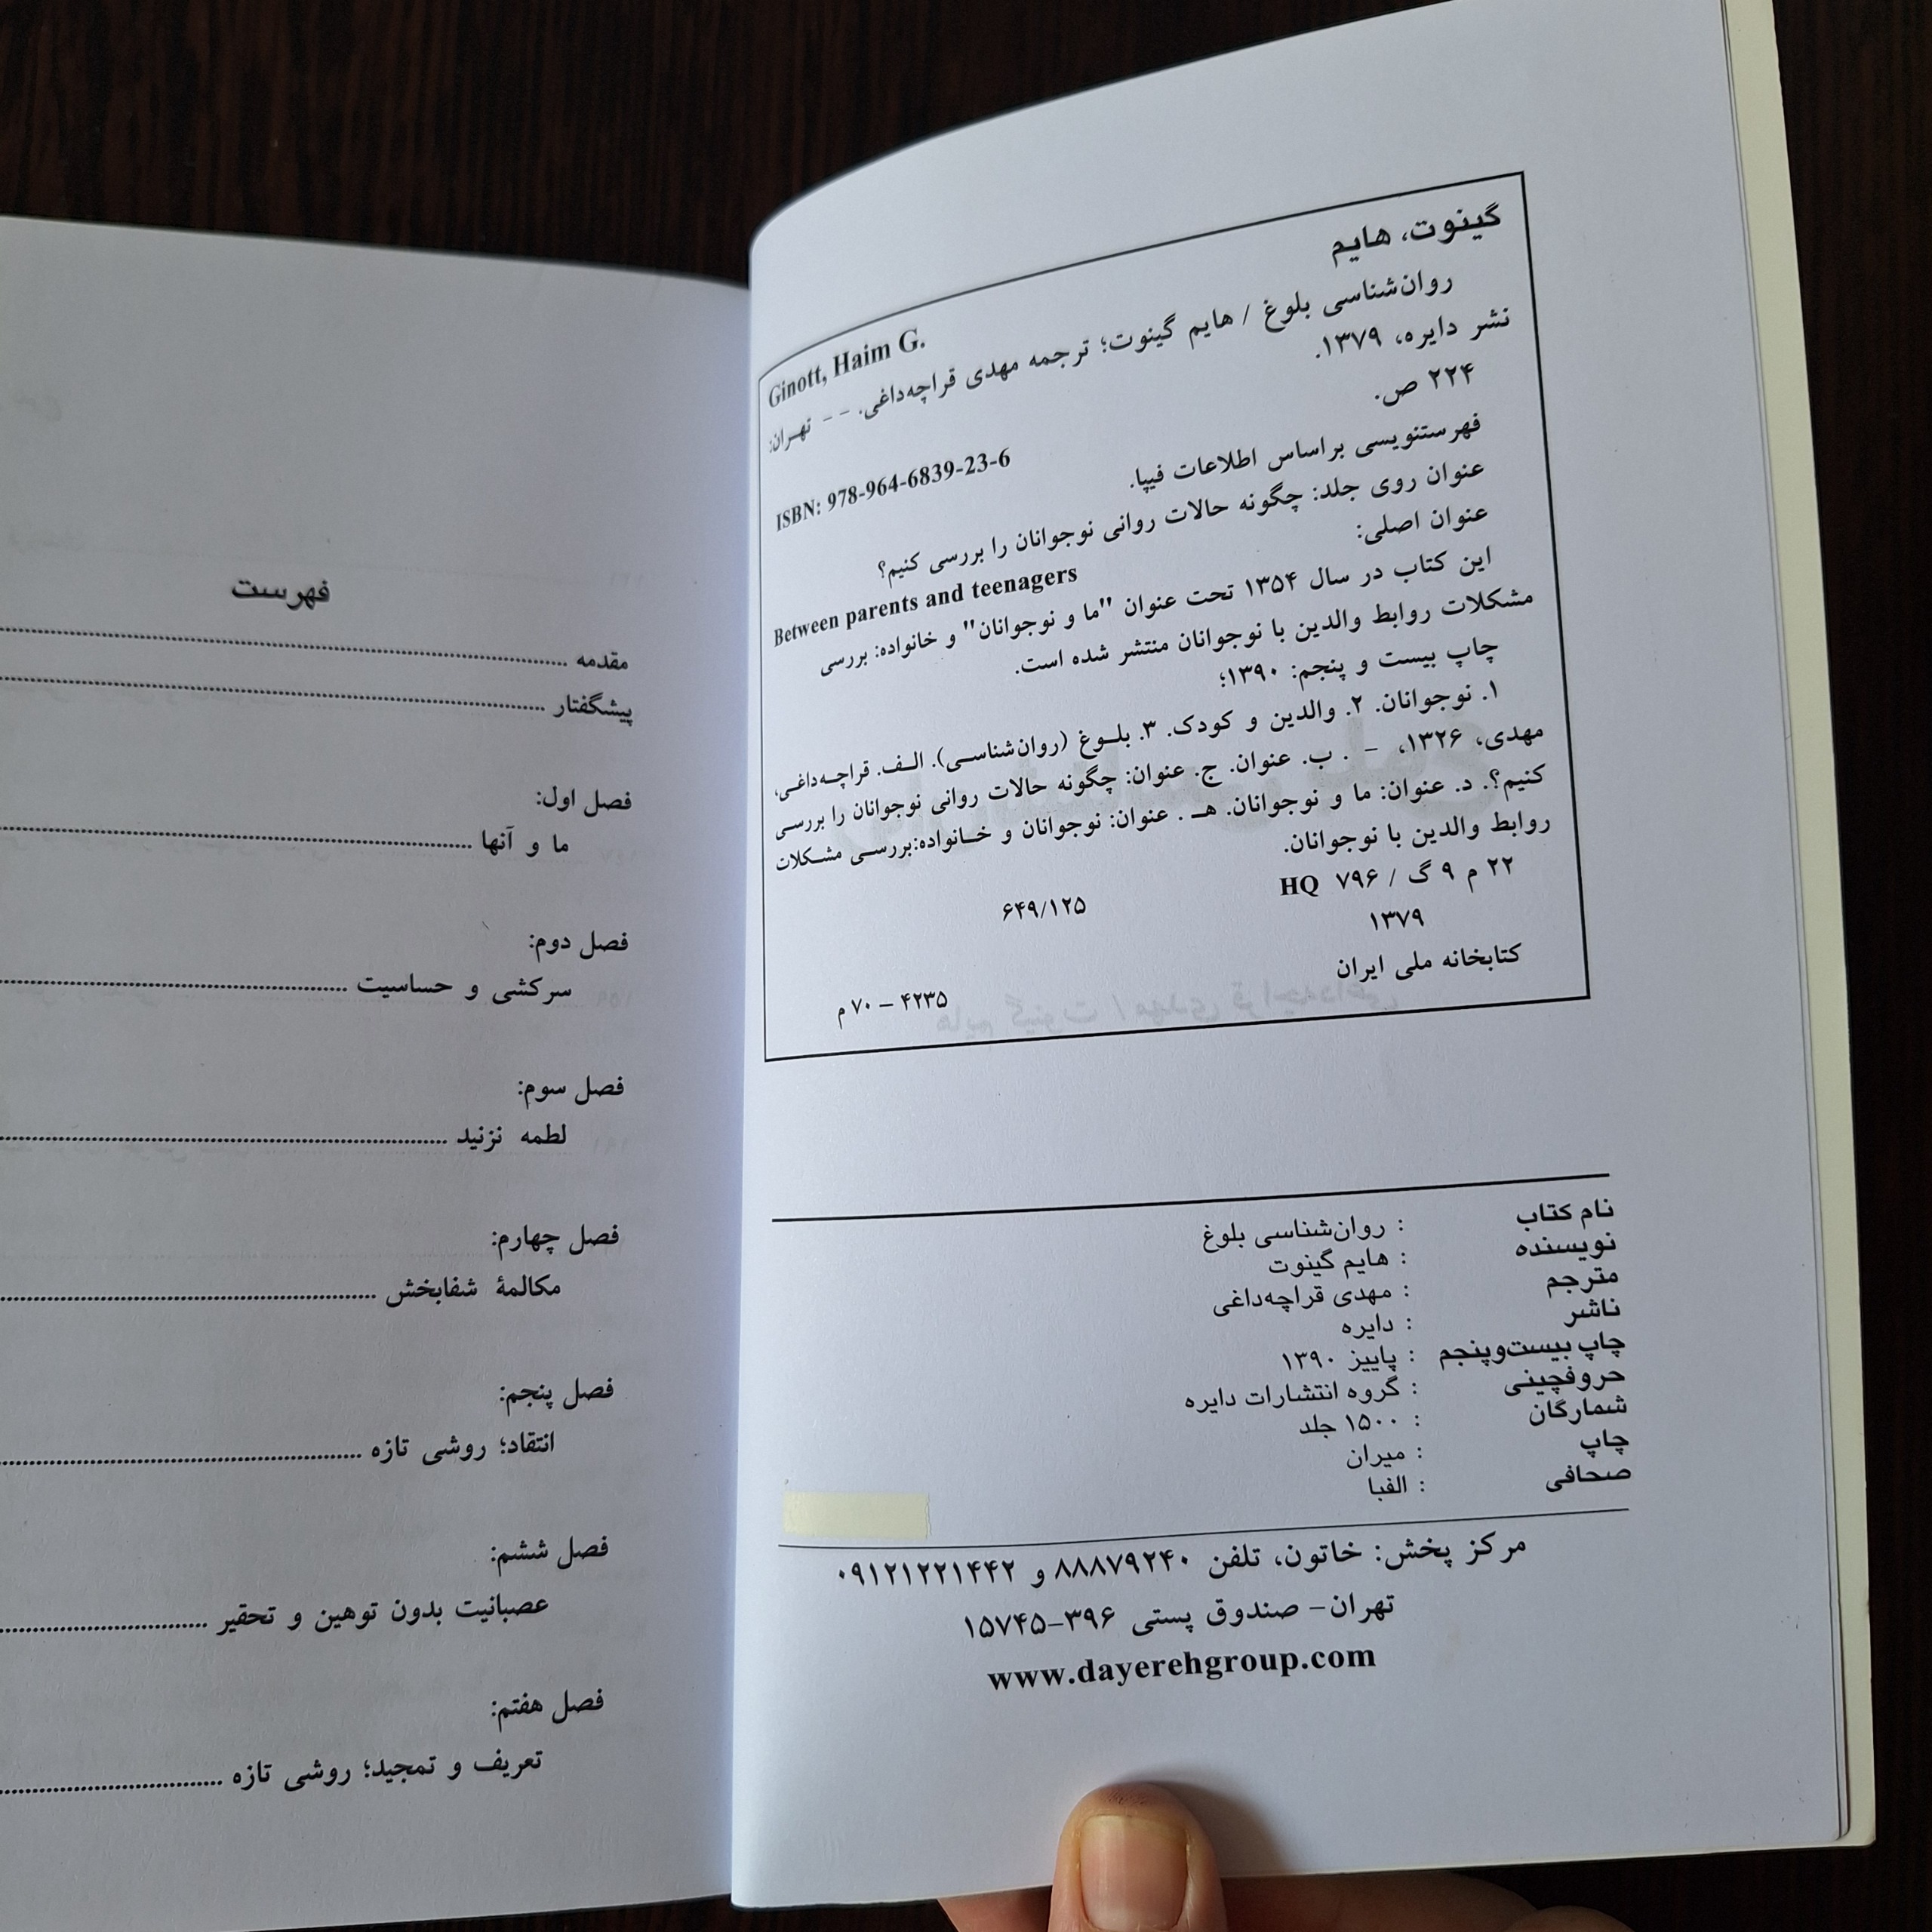 گینوت، هایم
Ginott, Haim G.
روان‌شناسی بلوغ / هایم گینوت؛ ترجمه مهدی قراچه‌داغی. -- تهران:
نشر دایره، ۱۳۷۹.
۲۲۴ ص.
ISBN: 978-964-6839-23-6
فهرستنویسی براساس اطلاعات فیپا.
عنوان روی جلد: چگونه حالات روانی نوجوانان را بررسی کنیم؟
عنوان اصلی:
Between parents and teenagers
این کتاب در سال ۱۳۵۴ تحت عنوان "ما و نوجوانان" و خانواده: بررسی
مشکلات روابط والدین با نوجوانان منتشر شده است.
چاپ بیست و پنجم: ۱۳۹۰؛
۱. نوجوانان. ۲. والدین و کودک. ۳. بلوغ (روان‌شناسی). الف. قراچه‌داغی،
مهدی، ۱۳۲۶، - . ب. عنوان. ج. عنوان: چگونه حالات روانی نوجوانان را بررسی
کنیم؟. د. عنوان: ما و نوجوانان. هـ . عنوان: نوجوانان و خانواده:بررسی مشکلات
روابط والدین با نوجوانان.
۲۲ م ۹ گ / ۷۹۶ HQ
۶۴۹/۱۲۵
۱۳۷۹
کتابخانه ملی ایران
۴۲۳۵ – ۷۰ م
نام کتاب : روان‌شناسی بلوغ
نویسنده : هایم گینوت
مترجم : مهدی قراچه‌داغی
ناشر : دایره
چاپ بیست‌وپنجم : پاییز ۱۳۹۰
حروفچینی : گروه انتشارات دایره
شمارگان : ۱۵۰۰ جلد
چاپ : میران
صحافی : الفبا
مرکز پخش: خاتون، تلفن ۸۸۸۷۹۲۴۰ و ۰۹۱۲۱۲۲۱۴۴۲
تهران- صندوق پستی ۳۹۶-۱۵۷۴۵
www.dayerehgroup.com
فهرست
مقدمه
پیشگفتار
فصل اول:
ما و آنها
فصل دوم:
سرکشی و حساسیت
فصل سوم:
لطمه نزنید
فصل چهارم:
مکالمهٔ شفابخش
فصل پنجم:
انتقاد؛ روشی تازه
فصل ششم:
عصبانیت بدون توهین و تحقیر
فصل هفتم:
تعریف و تمجید؛ روشی تازه